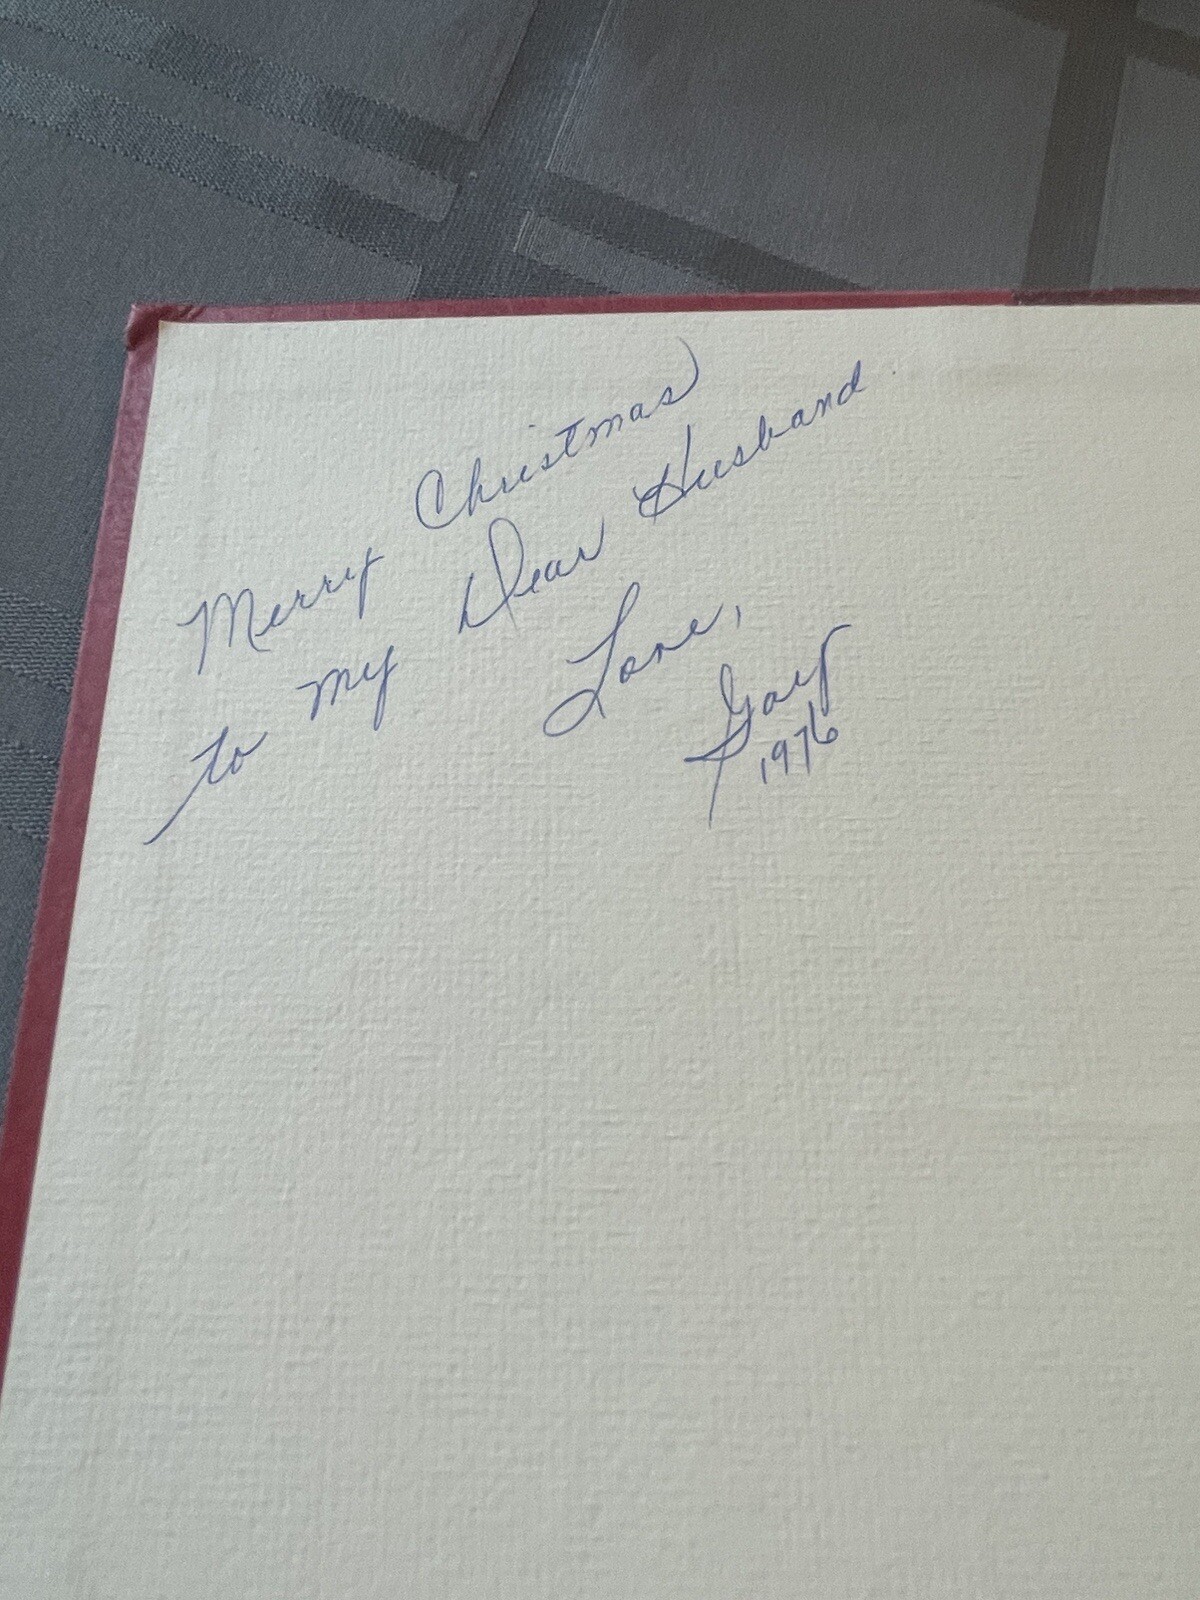 Merry Christmas
to my Dear Husband
Love,
Gary
1976